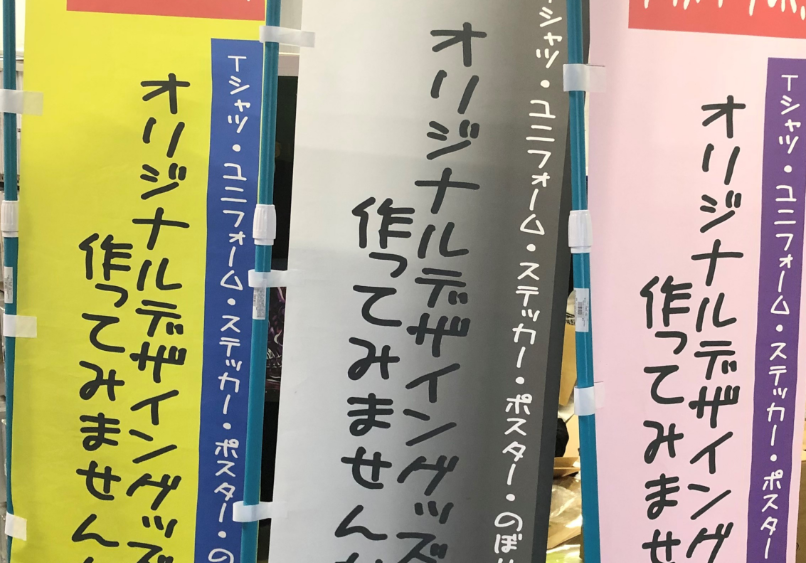 Tシャツ・ユニフォーム・ステッカー・ポスター・の
オリジナルデザイングッズ
作ってみません
シャツ・ユニフォーム・ステッカー・ポスター・のぼり
オリジナルデザイングッズ
作ってみません
Tシャツ・ユニフォーム・ステッカー・ポスター
オリジナルデザイング
作ってみませ